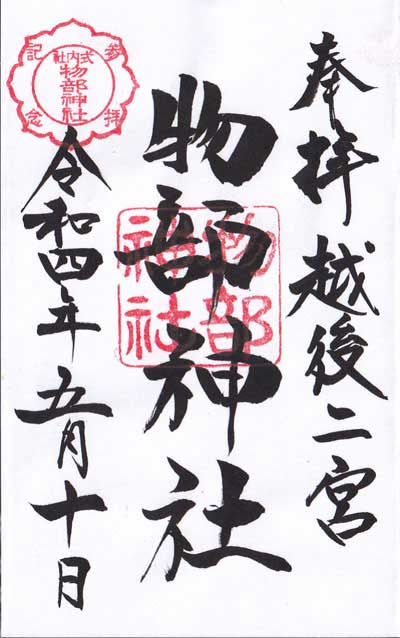 奉拝 越後二宮
物部神社
物部
神社
令和四年五月十日
参拝
記念
式内社
物部
神社